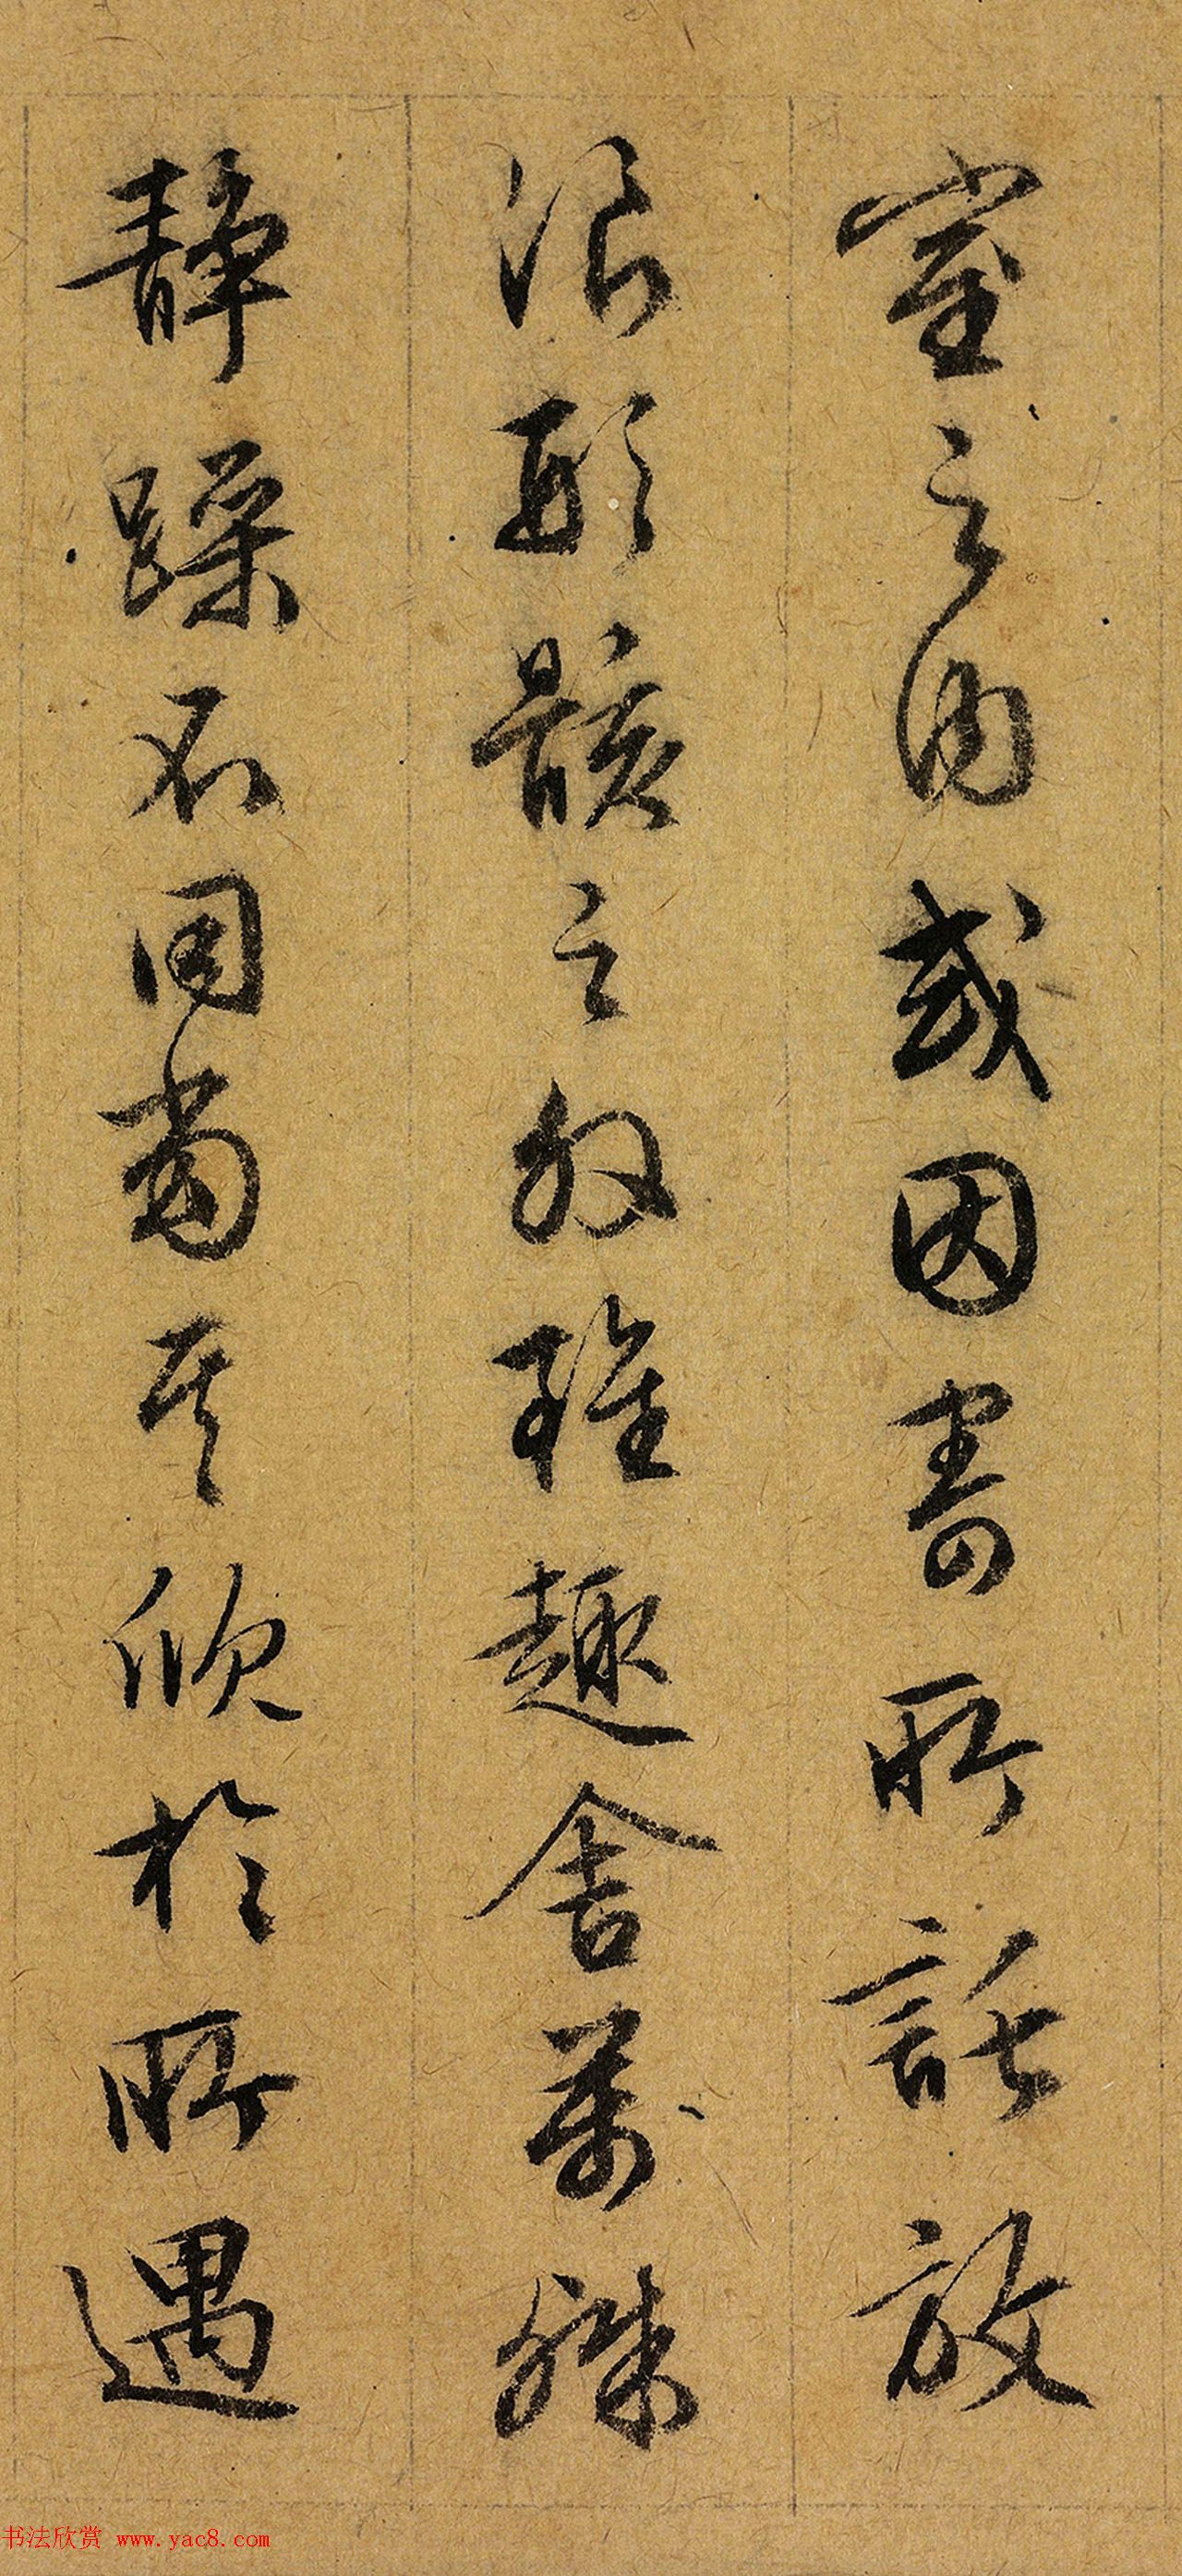 室之内或因寄所託放
浪形骸之外雖趣舍萬殊
静躁不同當其欣於所遇
书法欣赏 www.yac8.com